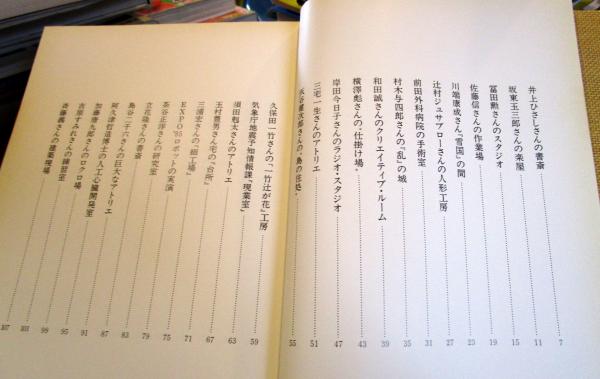 井上ひさしさんの書斎 7
坂東玉三郎さんの楽屋 11
冨田勲さんのスタジオ 15
佐藤信さんの作業場 19
川端康成さん「雪国」の間 23
辻村ジュサブローさんの人形工房 27
前田外科病院の手術室 31
村木与四郎さんの「乱」の城 35
和田誠さんのクリエイティブ・ルーム 39
横澤彪さんの〝仕掛け場〟 43
岸田今日子さんのラジオ・スタジオ 47
三宅一生さんのアトリエ 51
次郎さんの 55
久保田一竹さんの「一竹辻が花」工房 59
気象庁地震予知情報課「現業室」 63
須田剋太さんのアトリエ 67
玉村豊男さん宅の「台所」 71
三浦宏さんの「細工場」 75
EXPO'85ロボットの実演 79
茶谷正洋さんの研究室 83
立花隆さんの書斎 87
島谷二千六さんの巨大なアトリエ 91
阿久津哲造博士の人工心臓開発室 95
加藤唐九郎さんのロクロ場 99
吉原すみれさんの練習室 103
斎藤義さんの建築現場 107